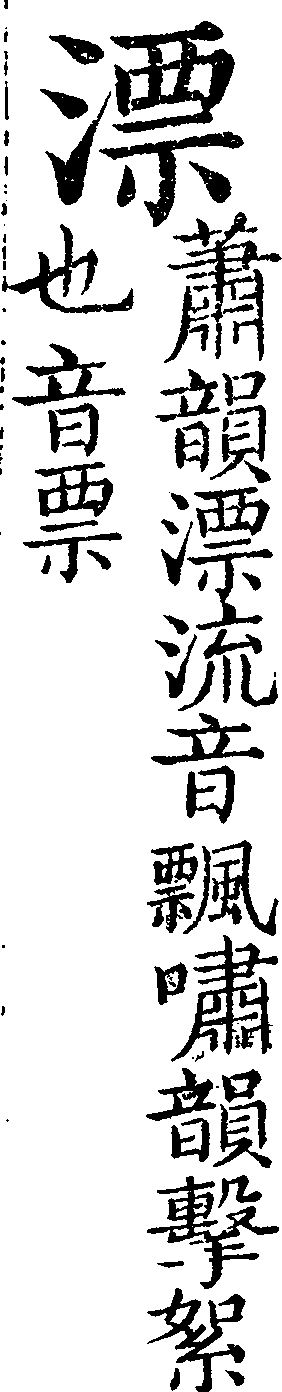 漂
蕭韻漂流音飄嘯韻擊絮
也音票